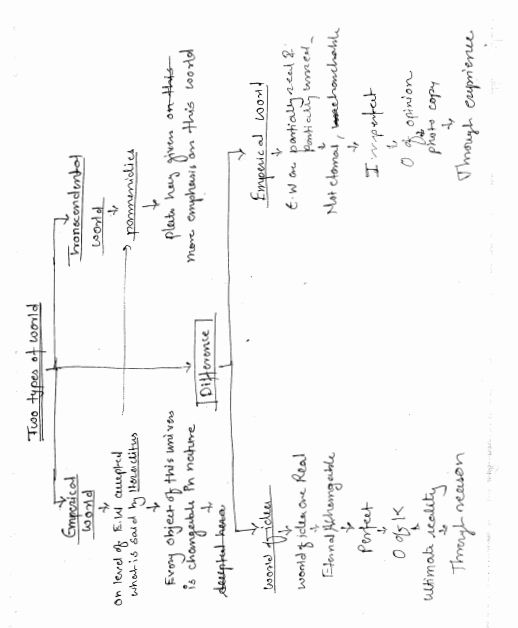 Two types of world
Emperical
world
on level of E.W accepted
what is said by Heraclitus
Every object of this univers
is changable in nature
accepted here
Trancendental
world
parmenidies
Plato hav given on this
more emphasis on this world
Difference
World of idea
World of idea are Real
Eternal,
Perfect
O of K
ultimate reality
Through reason
Emperical World
E.W are partially real &
partially unreal
Not eternal,
Imperfect
O of opinion
photo copy
Through experience